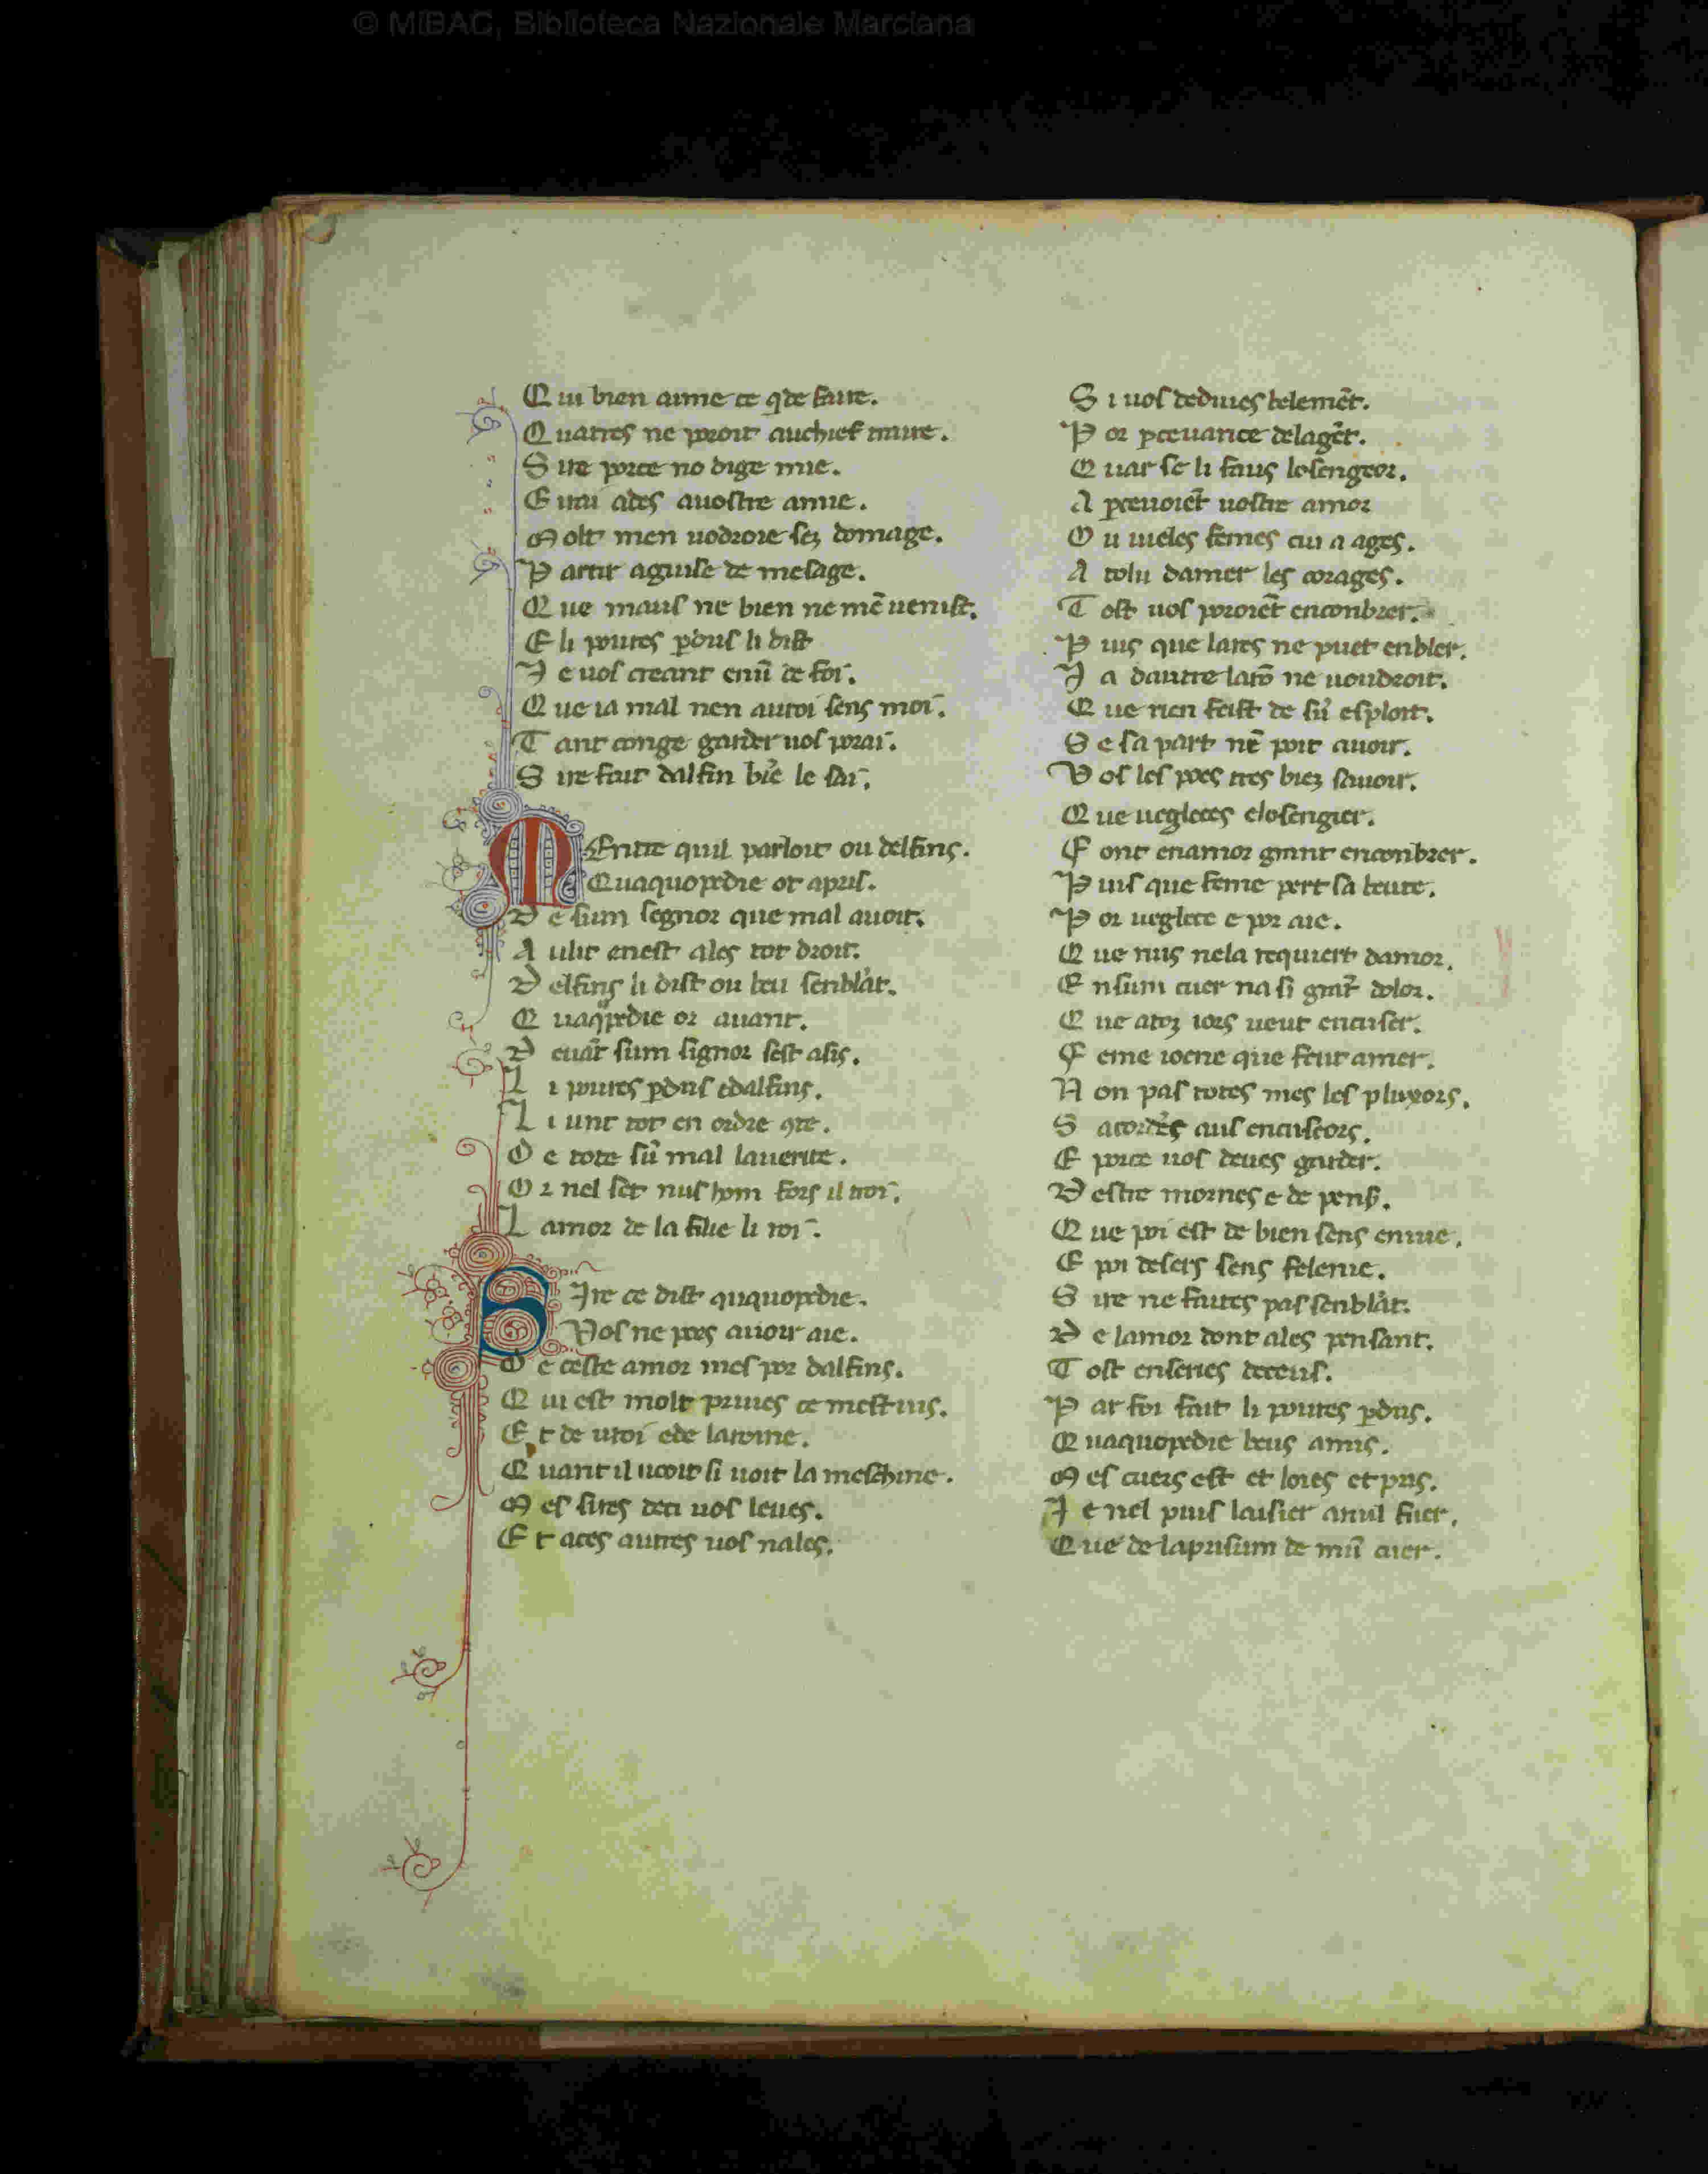 © MiBAC, Biblioteca Nazionale Marciana
Q ui bien aime ce qͥde faire.
Q uatres ne poroit auchief traire.
S ire porce no dige mie.
E nuai ales auostre amie.
M olt men uodroie sez domage.
P artir aguise de mesage.
Q ue maus ne bien ne mē uenist.
E li poures ꝑdus li dist
J e uos creant enū de foi.
Q ue ia mal nen auroi sens moi.
T ant conge garder uos porai.
S ire fait dalfin bīe le sai.
MEntre quil parloit ou delfins.
Quaquopedie ot apris.
D e sum segnor que mal auoit.
A ulit enest ales tot droit.
D elfins li dist ou beu senblāt.
Q uaqͦpedie or auant.
D euāt sum signor sest asis.
L i poures ꝑdus edalfins.
L i unt tot en ordre ꝯte.
D e tote sū mal lauerite.
O r nel set nus hom fors il troi.
L amor de la fille li roi.
SIre ce dist ququopedie.
Vos ne poes auoir aie.
D e ceste amor mes por dalfins.
Q ui est molt priues ce mest uis.
E t de uroi ede laroine.
Q uant il ucoit si uoit la meschine.
M es sires deci uos leues.
E t aces autres uos nales.
S i uos deduies belemēt.
P or ꝑceuance delagēt.
Q uar se li faus losengeor.
A ꝑceuoiēt uostre amor
O u uieles femes cui a ages.
A tolu damer les corages.
T ost uos poroiēt enconbrer.
P uis que lares ne puet enbler.
J a dautre larō ne uoudroit.
Q ue rien feist de sū esploit.
S e sa part nē poit auoir.
V os les poes tres biez sauoir.
Q ue uegleces elosengier.
F ont enamor grant enconbrer.
P uis que feme pert sa beute.
P or ueglece e por aie.
Q ue nus nela requiert damor.
E nsum cuer na si grāt dolor.
Q ue atoz iors ueut encuser.
F eme ioene que seut amer.
N on pas totes mes les pluxors.
S acordēs aus encuseors.
E porce uos deues garder.
D estre mornes e de pens̄.
Q ue poi est de bien sens enuie.
E poi desers sens felenie.
S ire ne faites pas senblāt.
D e lamor dont ales pensant.
T ost enseries deceus.
P ar foi fait li poures ꝑdus.
Q uaquopedie beus amis.
M es cuers est et loies et pris.
J e nel puis laisier anul fuer.
Q ue de laprisum de mū cuer.